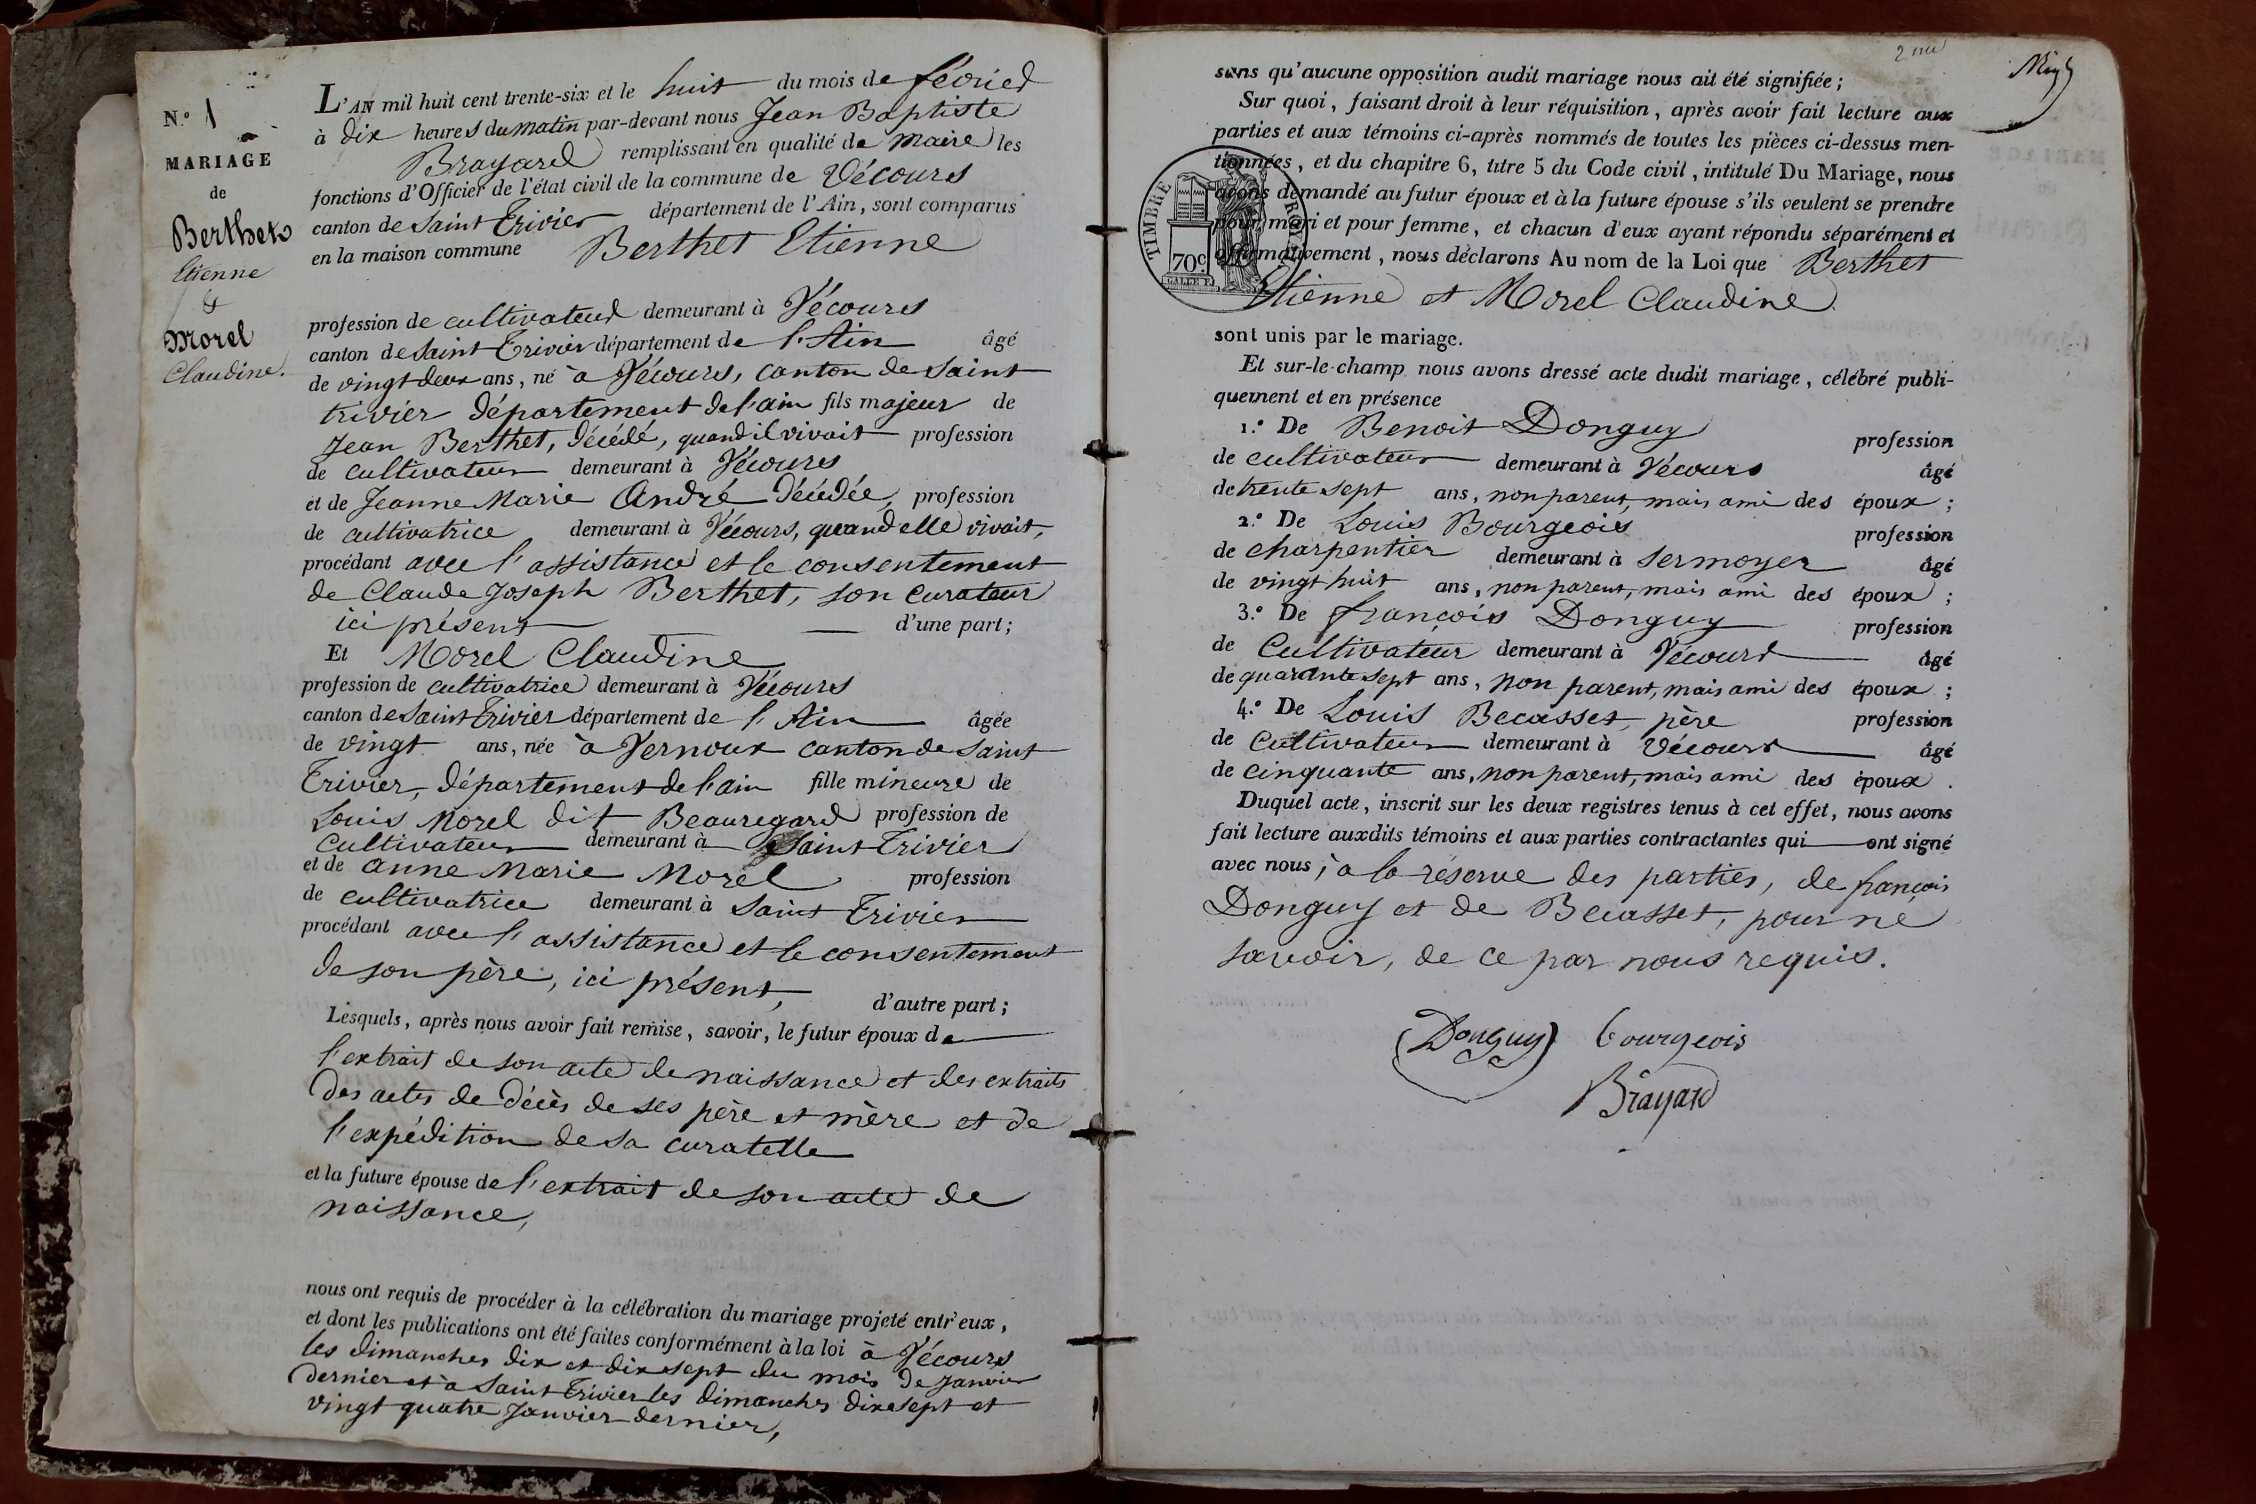 N.º 1
MARIAGE
de
Berthet
Etienne
&
Morel
Claudine.
L'AN mil huit cent trente-six et le huit du mois de février
à dix heures du matin par-devant nous Jean Baptiste
Brayard remplissant en qualité de maire les
fonctions d'Officier de l'état civil de la commune de Vécours
canton de Saint Trivier département de l'Ain, sont comparus
en la maison commune Berthet Etienne
profession de cultivateur demeurant à Vécours
canton de Saint Trivier département de l'Ain âgé
de vingt deux ans, né à Vécours, canton de Saint
trivier département de l'ain fils majeur de
Jean Berthet, décédé, quand il vivait profession
de cultivateur demeurant à Vécours
et de Jeanne Marie André décédée, profession
de cultivatrice demeurant à Vécours, quand elle vivait,
procédant avec l'assistance et le consentement
de Claude Joseph Berthet, son curateur
ici présent d'une part;
Et Morel Claudine
profession de cultivatrice demeurant à Vécours
canton de Saint Trivier département de l'Ain âgée
de vingt ans, née à Vernoux canton de Saint
Trivier, département de l'ain fille mineure de
Louis Morel dit Beauregard profession de
cultivateur demeurant à Saint Trivier
et de anne Marie Morel profession
de cultivatrice demeurant à Saint Trivier
procédant avec l'assistance et le consentement
de son père, ici présent, d'autre part;
Lesquels, après nous avoir fait remise, savoir, le futur époux de
l'extrait de son acte de naissance et des extraits
des actes de décès de ses père et mère et de
l'expédition de sa curatelle
et la future épouse de l'extrait de son acte de
naissance,
nous ont requis de procéder à la célébration du mariage projeté entr'eux,
et dont les publications ont été faites conformément à la loi à Vécours
les dimanches dix et dix sept du mois de Janvier
dernier et à Saint Trivier les dimanches dix sept et
vingt quatre Janvier dernier,
sans qu'aucune opposition audit mariage nous ait été signifiée;
Sur quoi, faisant droit à leur réquisition, après avoir fait lecture aux
parties et aux témoins ci-après nommés de toutes les pièces ci-dessus men-
tionnées, et du chapitre 6, titre 5 du Code civil, intitulé Du Mariage, nous
avons demandé au futur époux et à la future épouse s'ils veulent se prendre
pour mari et pour femme, et chacun d'eux ayant répondu séparément et
affirmativement, nous déclarons Au nom de la Loi que Berthet
Etienne et Morel Claudine.
TIMBRE ROYAL
70c
sont unis par le mariage.
Et sur-le-champ nous avons dressé acte dudit mariage, célébré publi-
quement et en présence
1.º De Benoit Donguy profession
de cultivateur demeurant à Vécours âgé
de trente sept ans, non parent, mais ami des époux;
2.º De Louis Bourgeois profession
de charpentier demeurant à Sermoyer âgé
de vingt huit ans, non parent, mais ami des époux;
3.º De françois Donguy profession
de Cultivateur demeurant à Vécours âgé
de quarante sept ans, non parent, mais ami des époux;
4.º De Louis Becasset, père profession
de Cultivateur demeurant à Vécours âgé
de cinquante ans, non parent, mais ami des époux.
Duquel acte, inscrit sur les deux registres tenus à cet effet, nous avons
fait lecture auxdits témoins et aux parties contractantes qui ont signé
avec nous, à la réserve des parties, de françois
Donguy et de Becasset, pour ne
savoir, de ce par nous requis.
Donguy bourgeois
Brayard